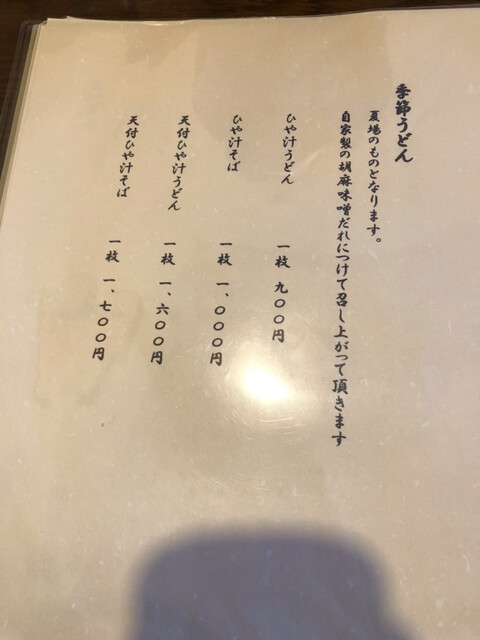 季節うどん
夏場のものとなります。
自家製の胡麻味噌だれにつけて召し上がって頂きます
ひや汁うどん 一枚 九〇〇円
ひや汁そば 一枚 一、〇〇〇円
天付ひや汁うどん 一枚 一、六〇〇円
天付ひや汁そば 一枚 一、七〇〇円